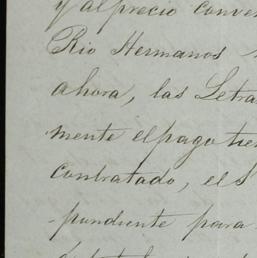 y al precio conven
Rio Hermanos
ahora, las Letra
mente el pago tien
contratado, el S
pondiente para